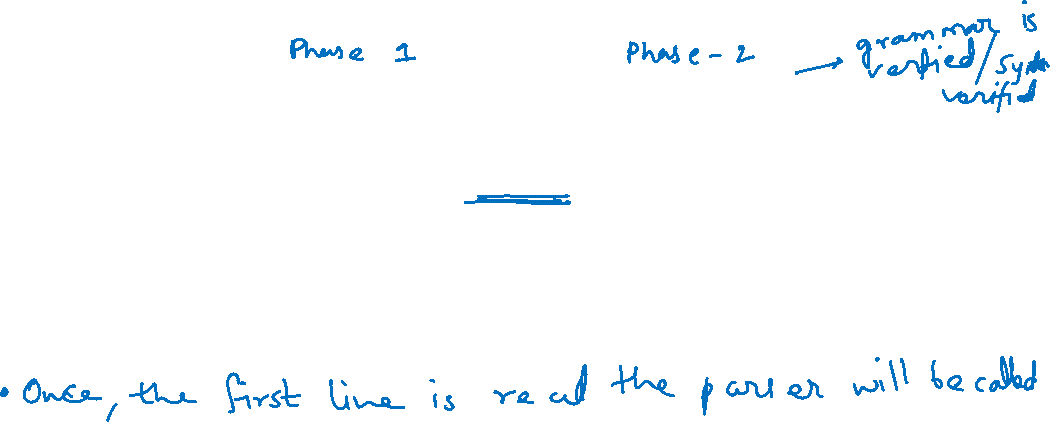 Phase 1
Phase - 2
→ grammar is
verified / Syntax
verified
• Once, the first line is read the parser will be called